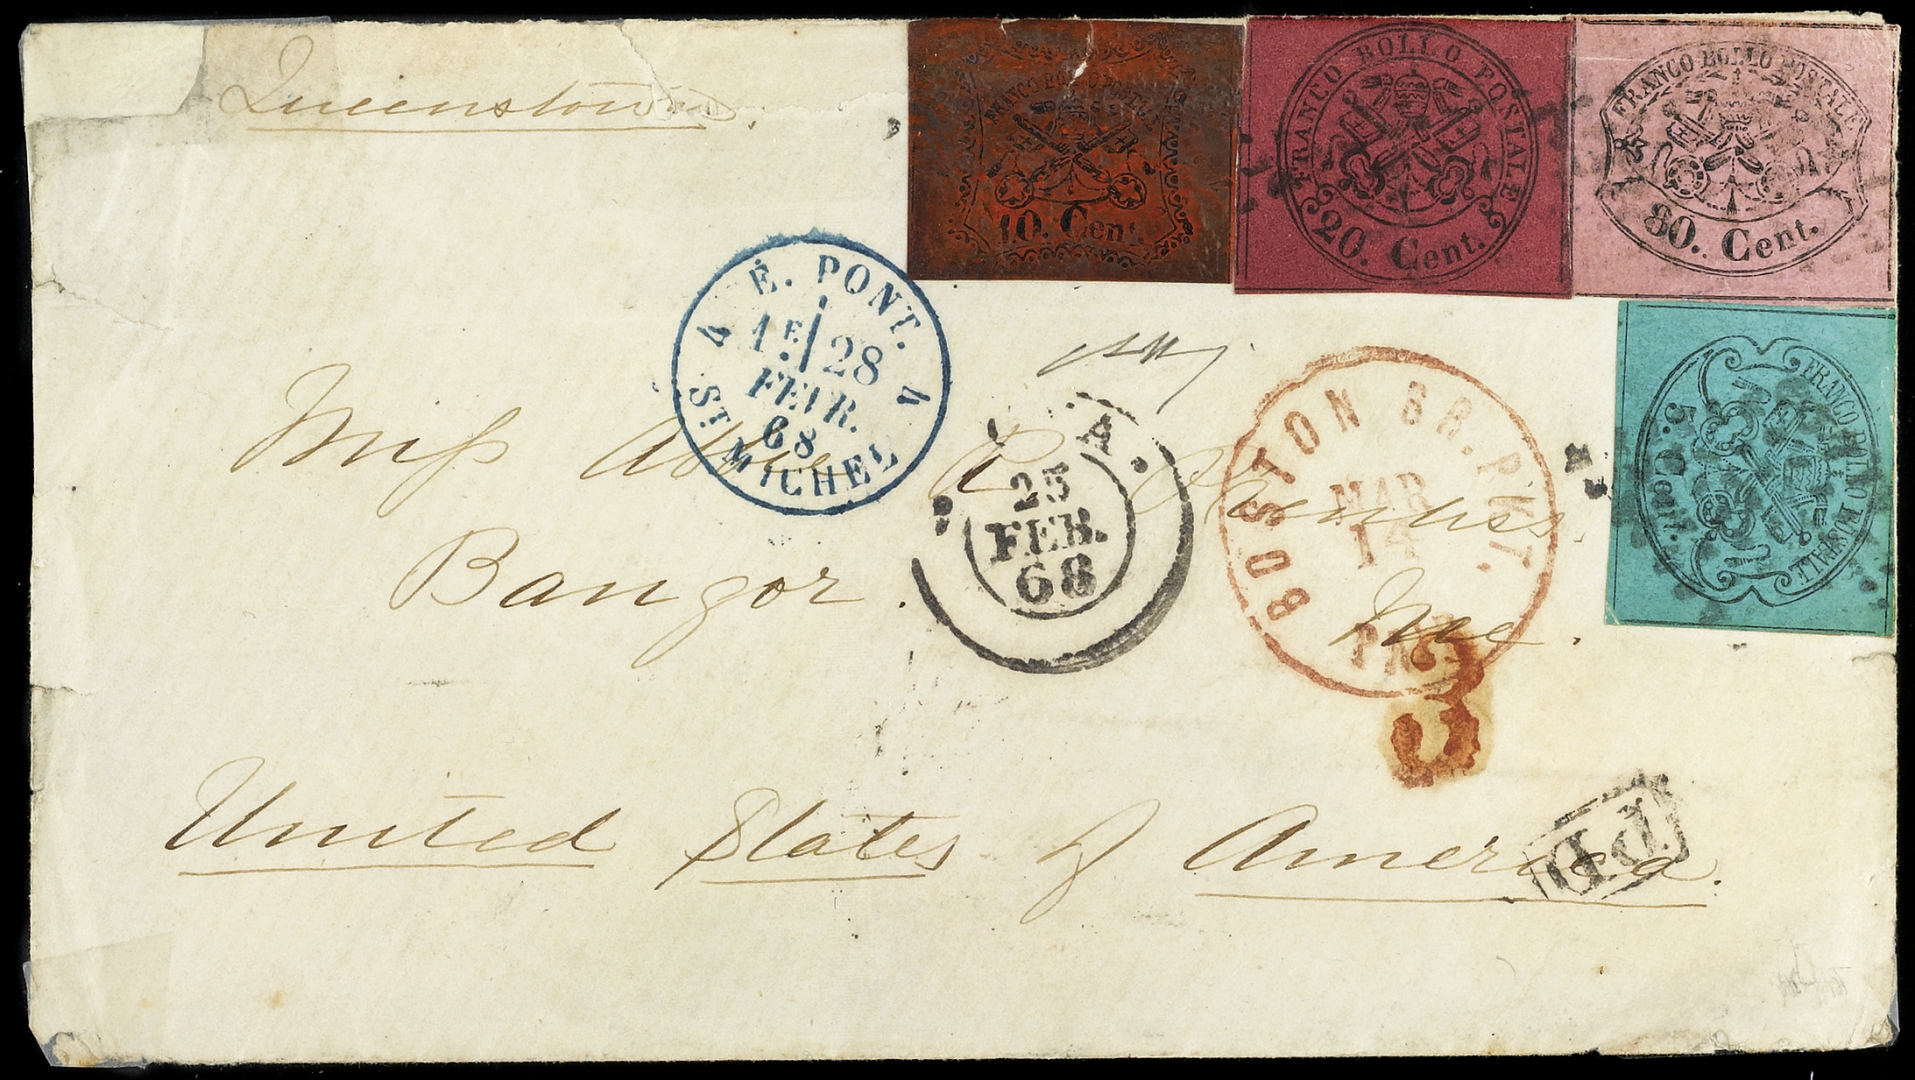 Queenstown.
FRANCO BOLLO POSTALE
10. Cent.
FRANCO BOLLO POSTALE
20. Cent.
FRANCO BOLLO POSTALE
80. Cent.
FRANCO BOLLO POSTALE
5. Cent.
É. PONT.
1E 28
FEVR.
68
ST. MICHEL
A.
25
FEB.
68
BOSTON BR. PKT.
MAR
14
PAID
3
Miss Abbie R.
Bangor.
Me.
United States of America.
PD